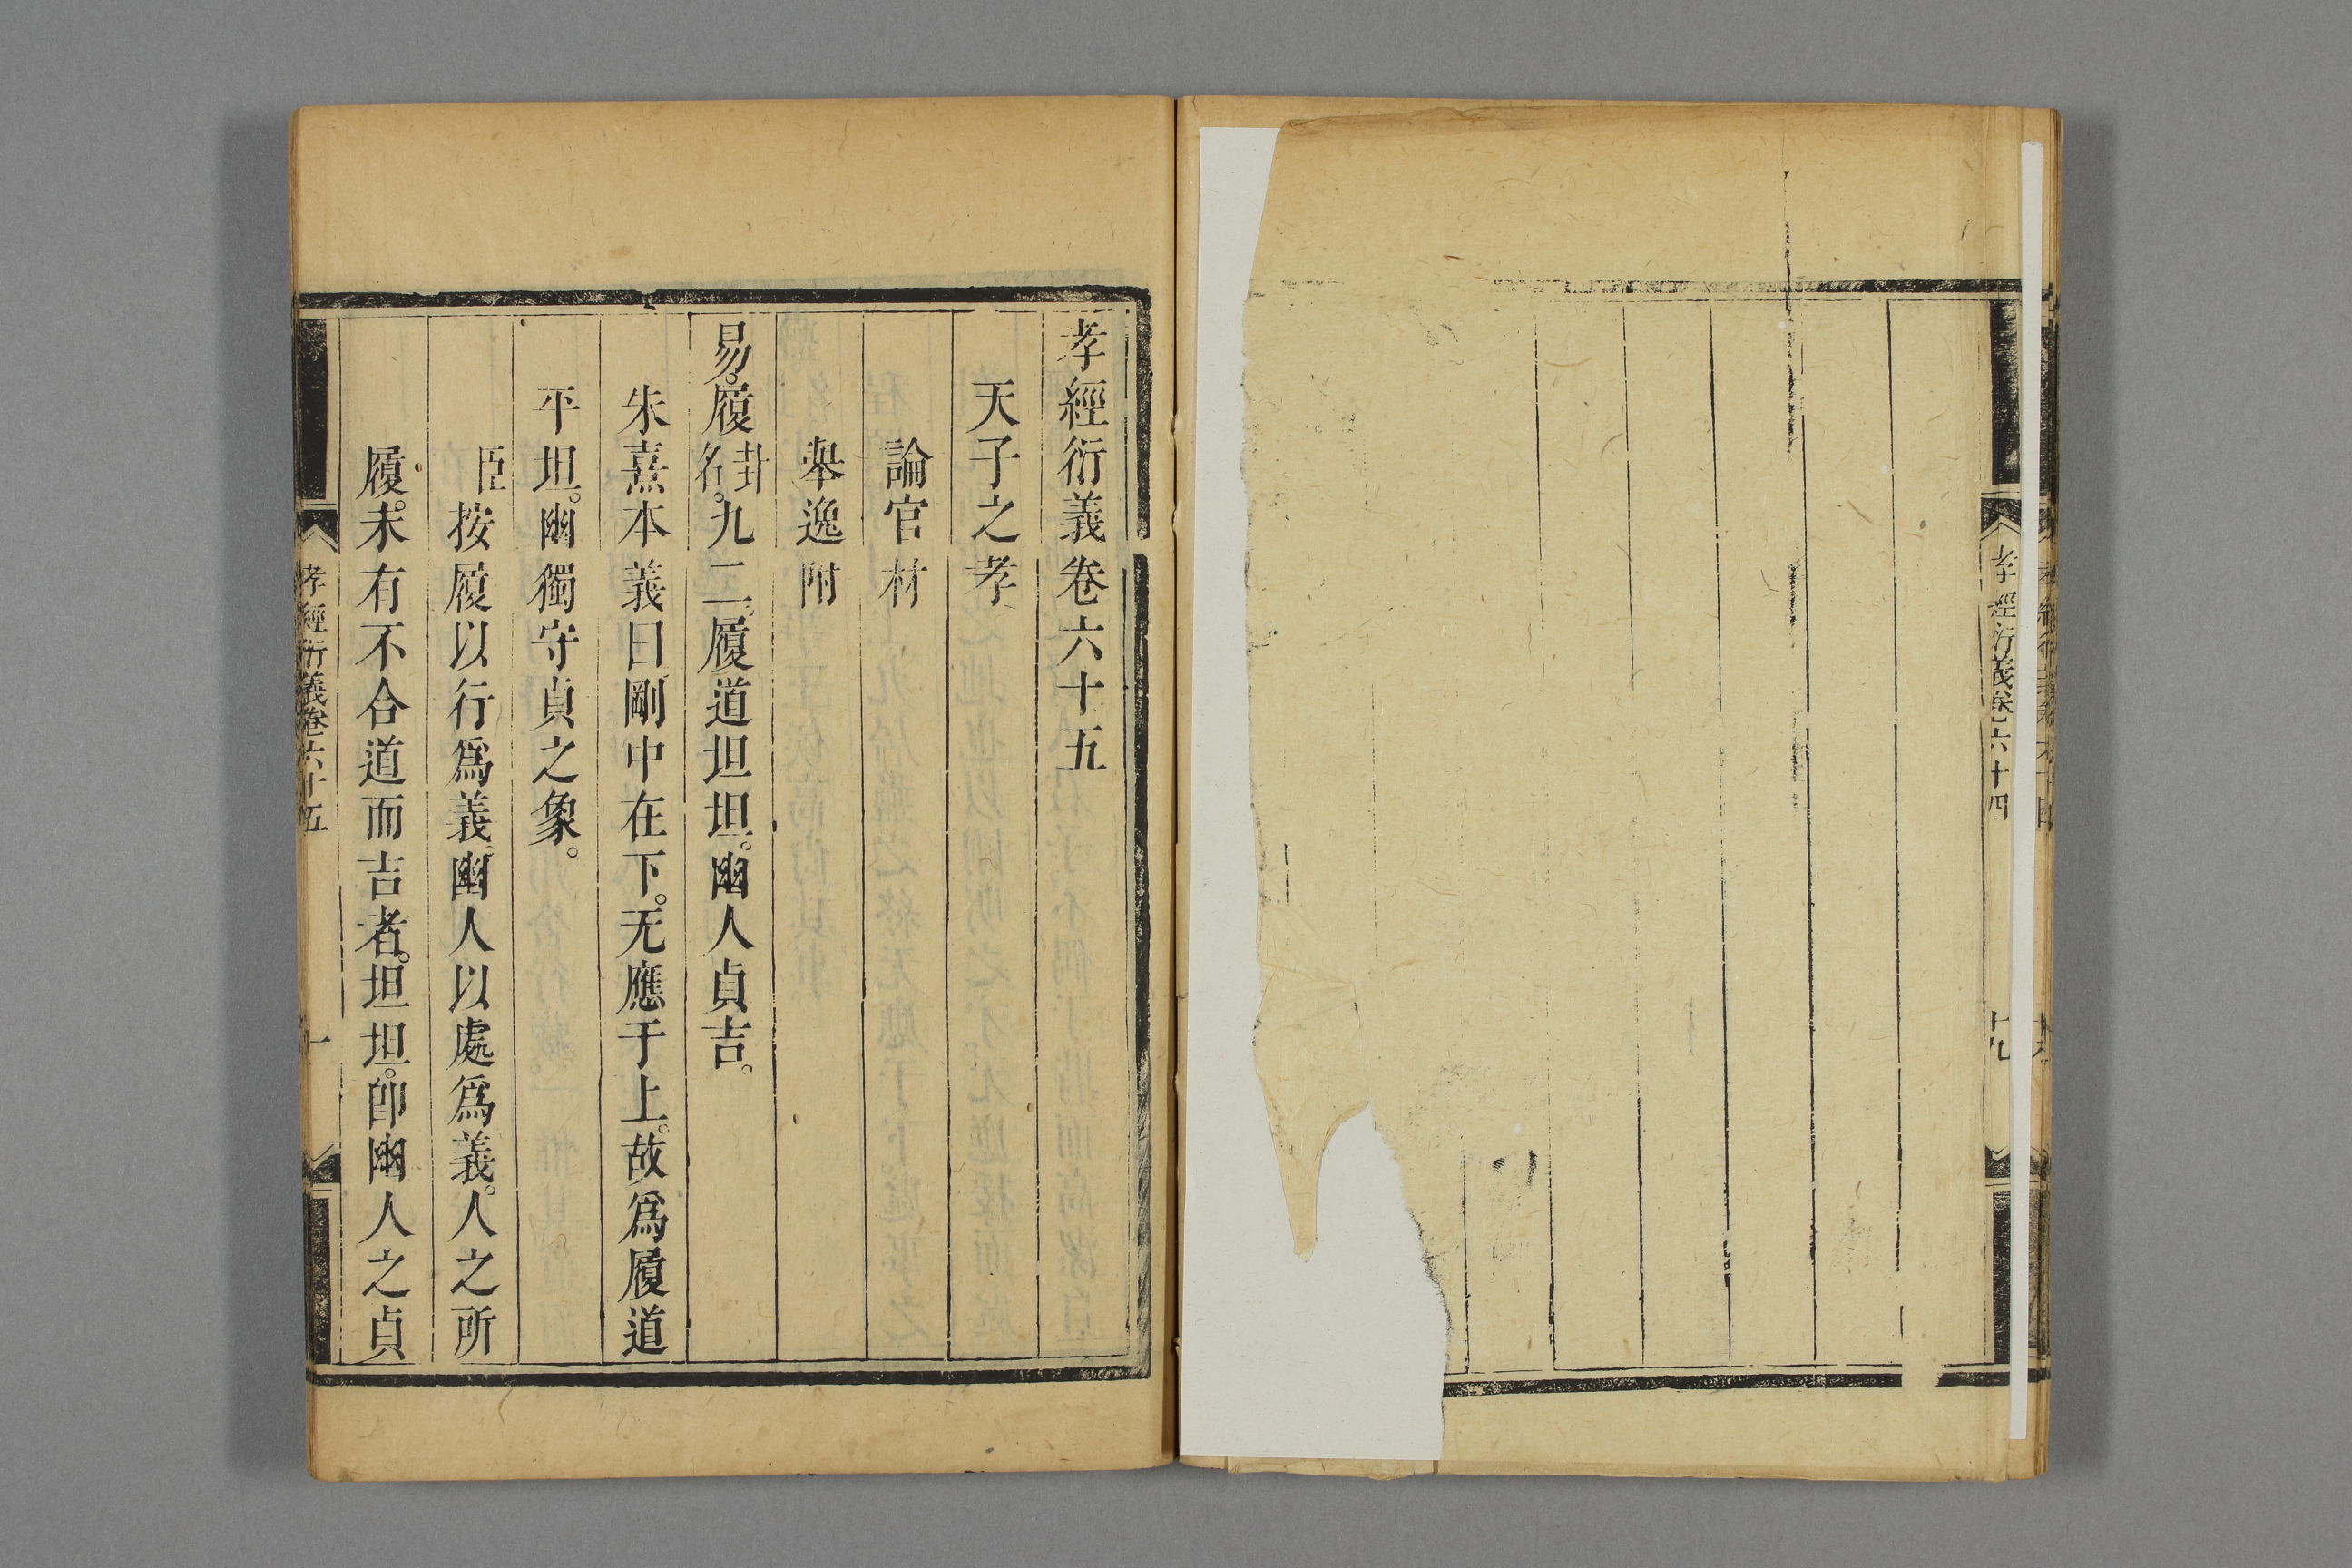 孝經衍義卷六十四
十九
孝經衍義卷六十五
天子之孝
論官材
舉逸附
易。履卦名。九二。履道坦坦。幽人貞吉。
朱熹本義曰剛中在下。无應于上。故爲履道
平坦。幽獨守貞之象。
臣按履以行爲義。幽人以處爲義。人之所
履。未有不合道而吉者。坦坦。卽幽人之貞
孝經衍義卷六十五
一